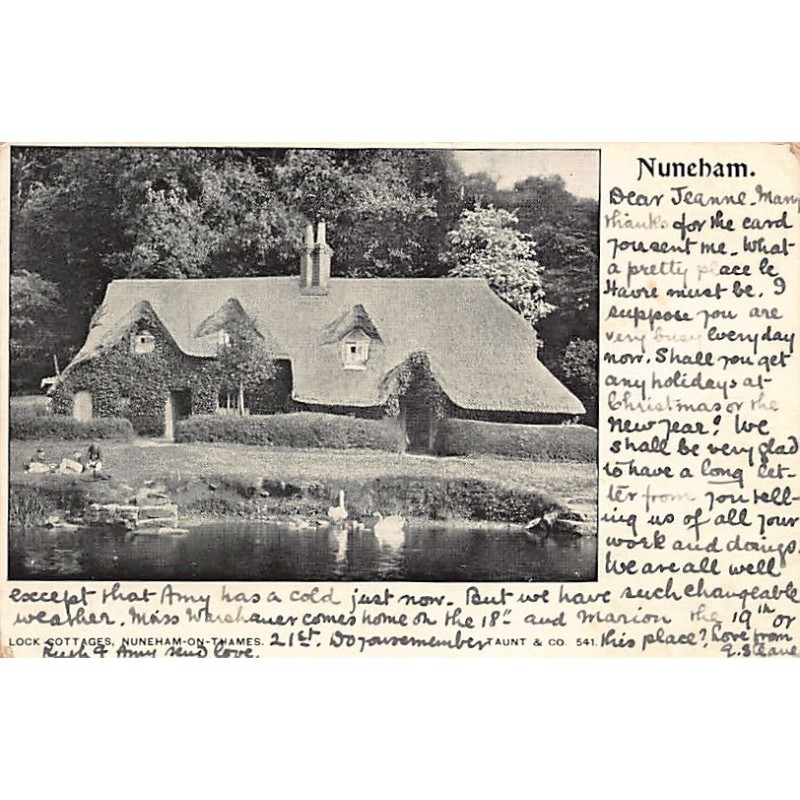 Nuneham.
Dear Jeanne. Many
thanks for the card
you sent me. What
a pretty place le
Havre must be. I
suppose you are
very busy everyday
now. Shall you get
any holidays at
Christmas or the
new year? We
shall be very glad
to have a long let-
ter from you tell-
ing us of all your
work and doings.
We are all well
except that Amy has a cold just now. But we have such changeable
weather. Miss Warehauer comes home on the 18th and Marion the 19th or
21st. Do you remember this place? Love from
Ruth & Amy send love.
LOCK COTTAGES, NUNEHAM-ON-THAMES.
TAUNT & CO. 541.